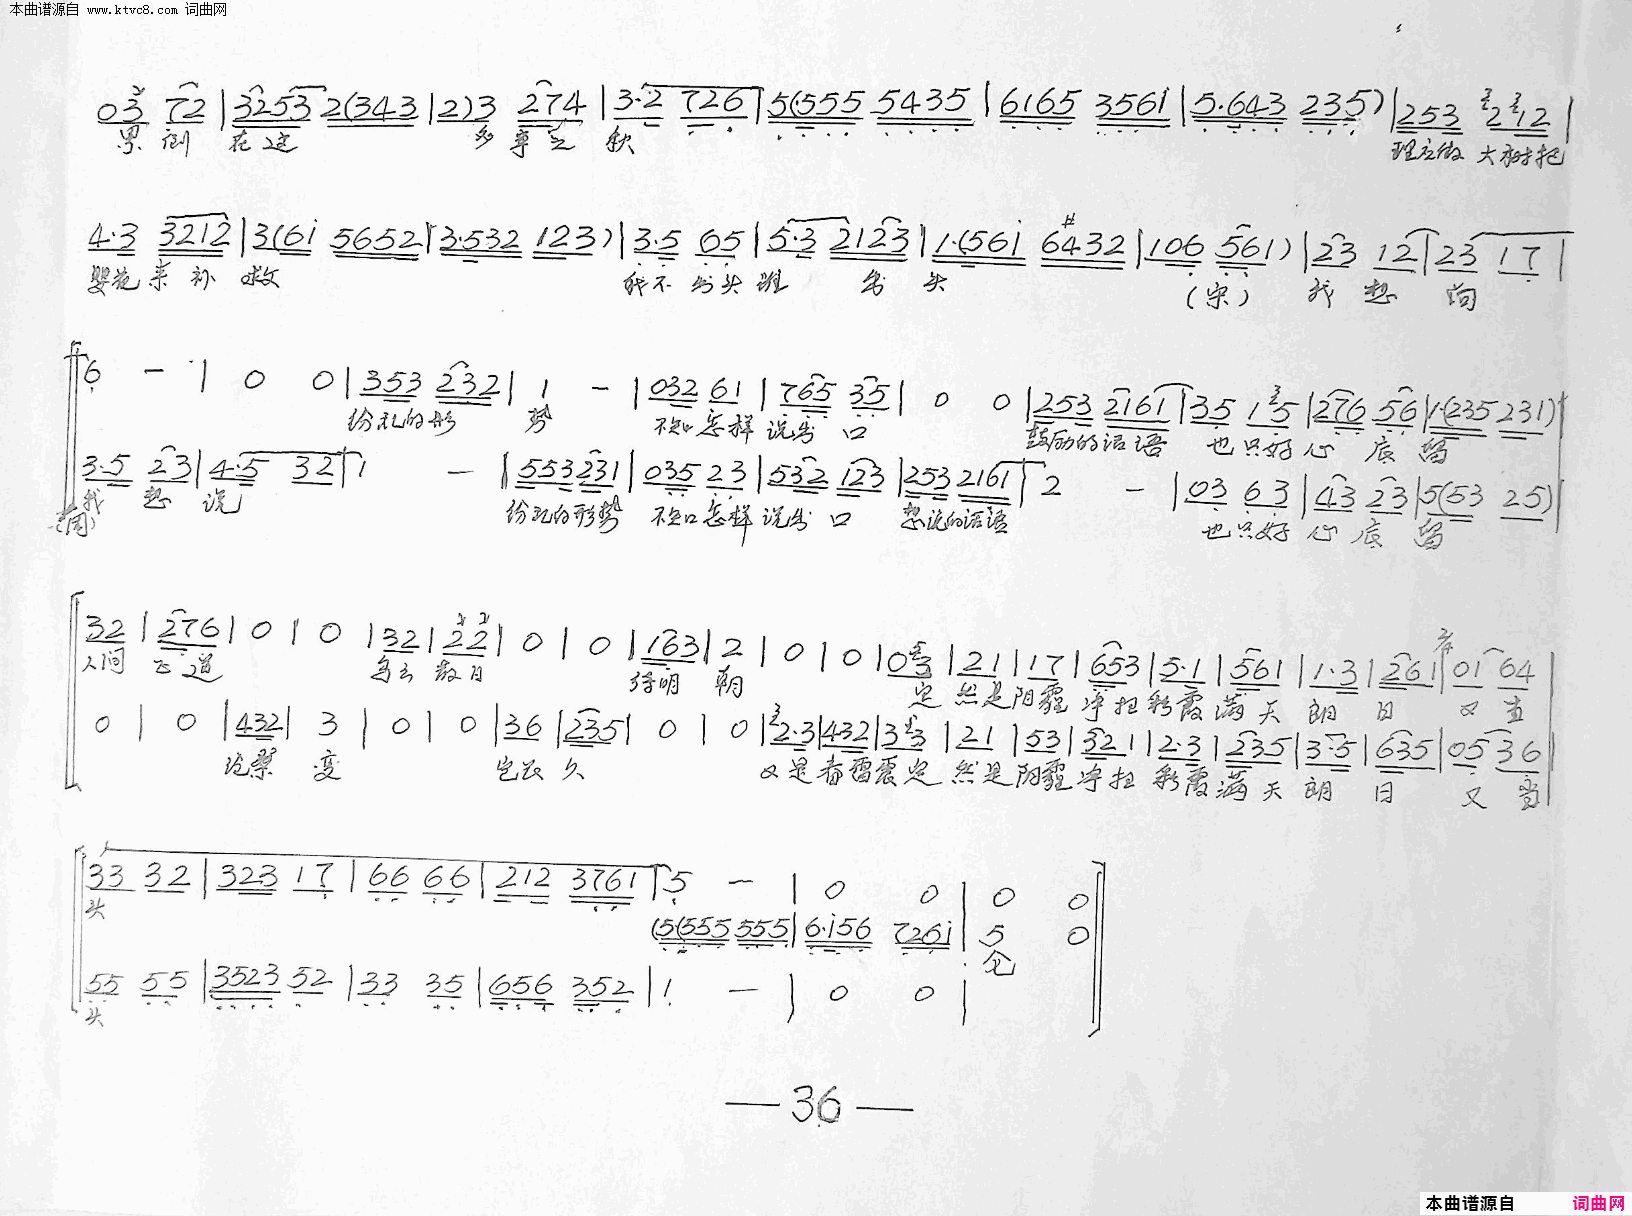 本曲谱源自 www.ktvc8.com 词曲网
03 72 | 3253 2(343 | 2)3 274 | 3·2 726 | 5(555 5435 | 6165 3561 | 5·643 235) | 253 212 |
累 倒 在这 多 事之 秋 理应做 大树把
4·3 3212 | 3(61 5652 | 3·532 123) | 3·5 65 | 5·3 2123 | 1·(561 6432 | 106 561) | 23 12 | 23 17 |
婴花来 补 救 我不 出头 谁 出 头 (宋) 我 想 向
6 — | 0 0 | 353 232 | 1 — | 032 61 | 765 35 | 0 0 | 253 2161 | 35 15 | 276 56 | 1·(235 231)
纷乱的形 势 不知怎样 说出 口 鼓励的话语 也只好 心 底 留
3·5 23 | 4·5 32 | 1 — | 553 231 | 035 23 | 532 123 | 253 2161 | 2 — | 03 63 | 43 23 | 5(53 25)
我 想 说 纷乱的形势 不知口怎样 说出 口 想说的话语 也只好 心 底 留
32 | 276 | 0 | 0 | 32 | 22 | 0 | 0 | 163 | 2 | 0 | 0 | 03 | 21 | 17 | 653 | 5·1 | 561 | 1·3 | 261 | 01 64
人间 正道 乌云 散日 待明 朝 定 然是阴霾 净扫 彩霞 满 天 朗 日 又 当
0 | 0 | 432 | 3 | 0 | 0 | 36 | 235 | 0 | 0 | 2·3 | 432 | 33 | 21 | 53 | 321 | 2·3 | 235 | 3·5 | 635 | 05 36
沧桑 变 岂能 久 又是春雷震定 然是阴霾 净扫 彩霞 满 天 朗 日 又 当
33 32 | 323 17 | 66 66 | 212 3761 | 5 — | 0 0 | 0 0
头
(5(555 555 | 6·156 7261 | 5 0
仓
55 55 | 3523 52 | 33 35 | 656 352 | 1 — | 0 0 |
头
— 36 —
本曲谱源自 词曲网